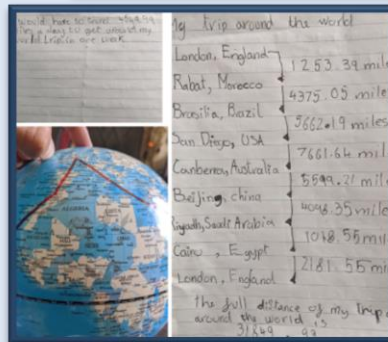 would have to travel 4549.99
miles a day to get around my
world trip in one week
My trip around the world
London, England
1253.39 mile
Rabat, Morocco
4375.05 mile
Brasilia, Brazil
5662.19 miles
San Diego, USA
7661.64 mil
Canberra, Australia
5599.21 mil
Beijing, china
4098.35 mile
Riyadh, Saudi Arabia
1018.55 mil
Cairo, Egypt
2181.55 mi
London, England
the full distance of my trip
around the world is
31849.93